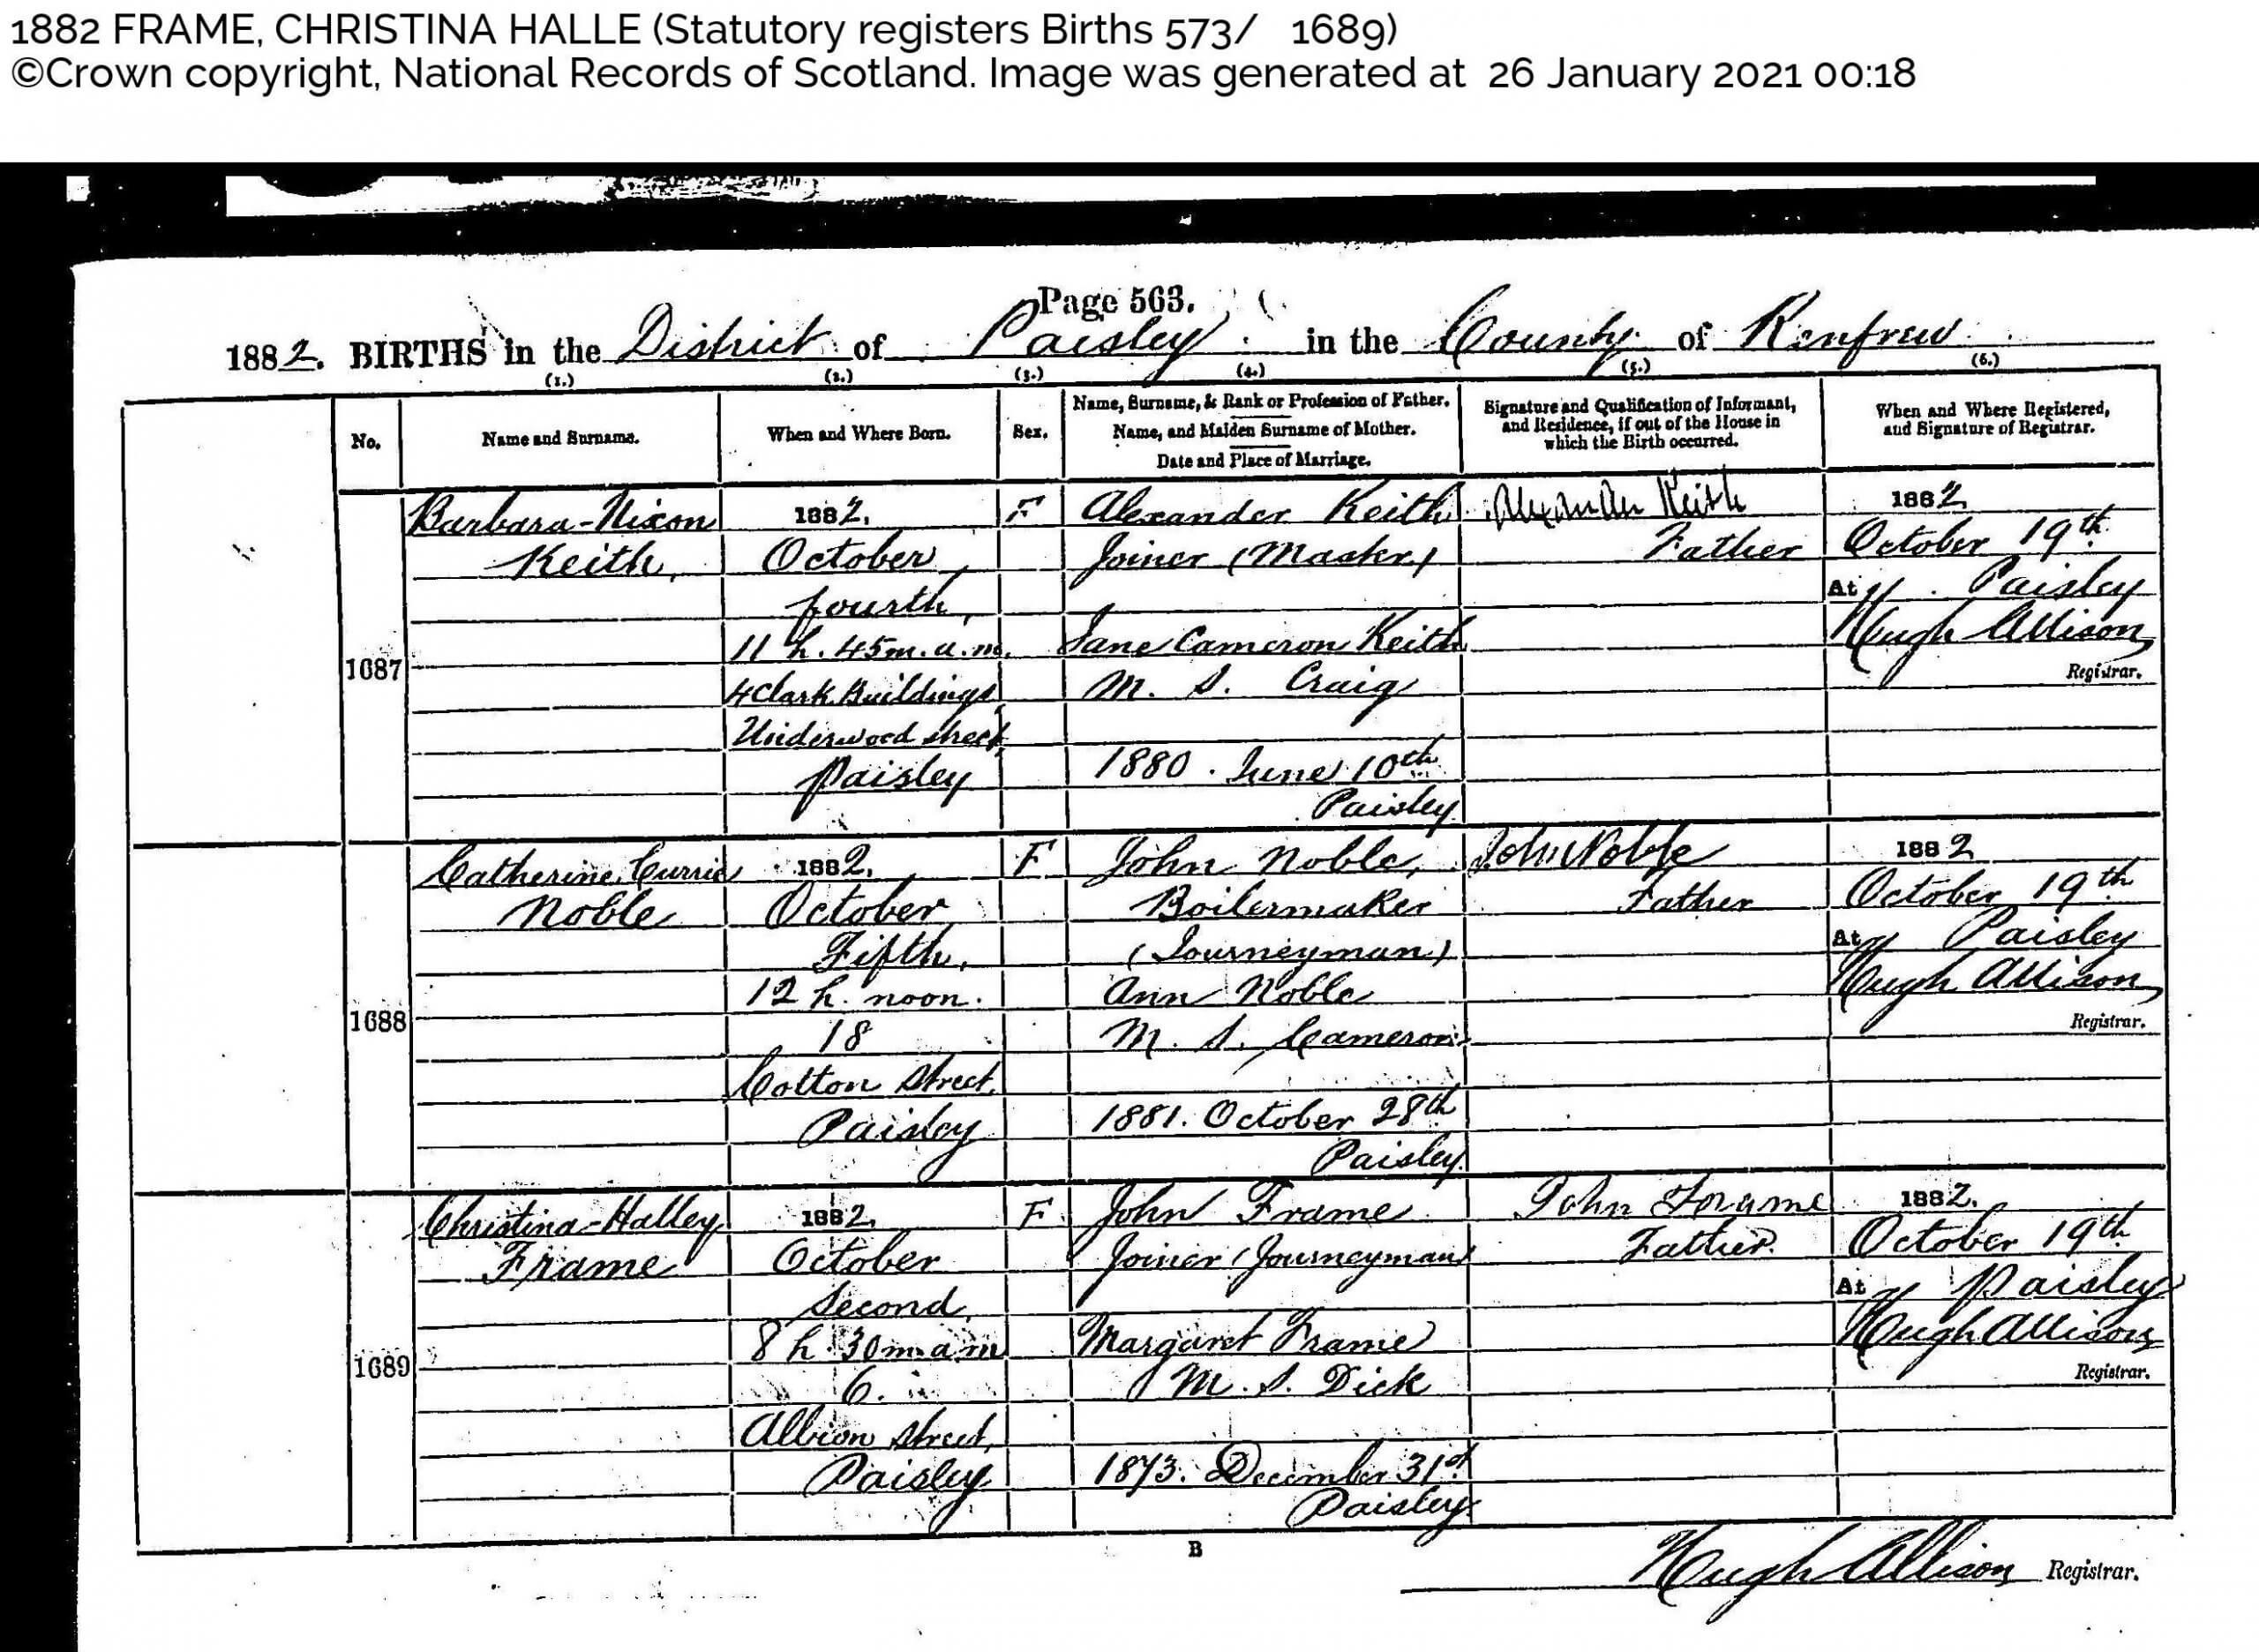 1882 FRAME, CHRISTINA HALLE (Statutory registers Births 573/ 1689)
©Crown copyright, National Records of Scotland. Image was generated at 26 January 2021 00:18
Page 563.
1882. BIRTHS in the District of Paisley in the County of Renfrew
(1.) (2.) (3.) (4.) (5.) (6.)
No.
Name and Surname.
When and Where Born.
Sex.
Name, Surname, & Rank or Profession of Father.
Name, and Maiden Surname of Mother.
Date and Place of Marriage.
Signature and Qualification of Informant,
and Residence, if out of the House in
which the Birth occurred.
When and Where Registered,
and Signature of Registrar.
1687
Barbara-Nixon
Keith,
1882,
October
fourth,
11 h. 45m. a.m.
4 Clark Buildings
Underwood street,
Paisley
F
Alexander Keith
Joiner (Master)
Jane Cameron Keith
M. S. Craig
1880. June 10th
Paisley
Alexander Keith
Father
1882
October 19th
At Paisley
Hugh Allison
Registrar.
1688
Catherine Currie
Noble
1882,
October
Fifth,
12 h. noon.
18
Cotton Street,
Paisley
F
John Noble,
Boilermaker
(Journeyman)
Ann Noble
M. S. Cameron
1881. October 28th
Paisley
John Noble
Father
1882
October 19th
At Paisley
Hugh Allison
Registrar.
1689
Christina-Halley
Frame
1882,
October
Second,
8 h 30 m. a m
6.
Albion Street,
Paisley
F.
John Frame
Joiner (Journeyman)
Margaret Frame
M. S. Dick
1873. December 31st
Paisley
John Frame
Father.
1882.
October 19th
At Paisley
Hugh Allison
Registrar.
B
Hugh Allison Registrar.